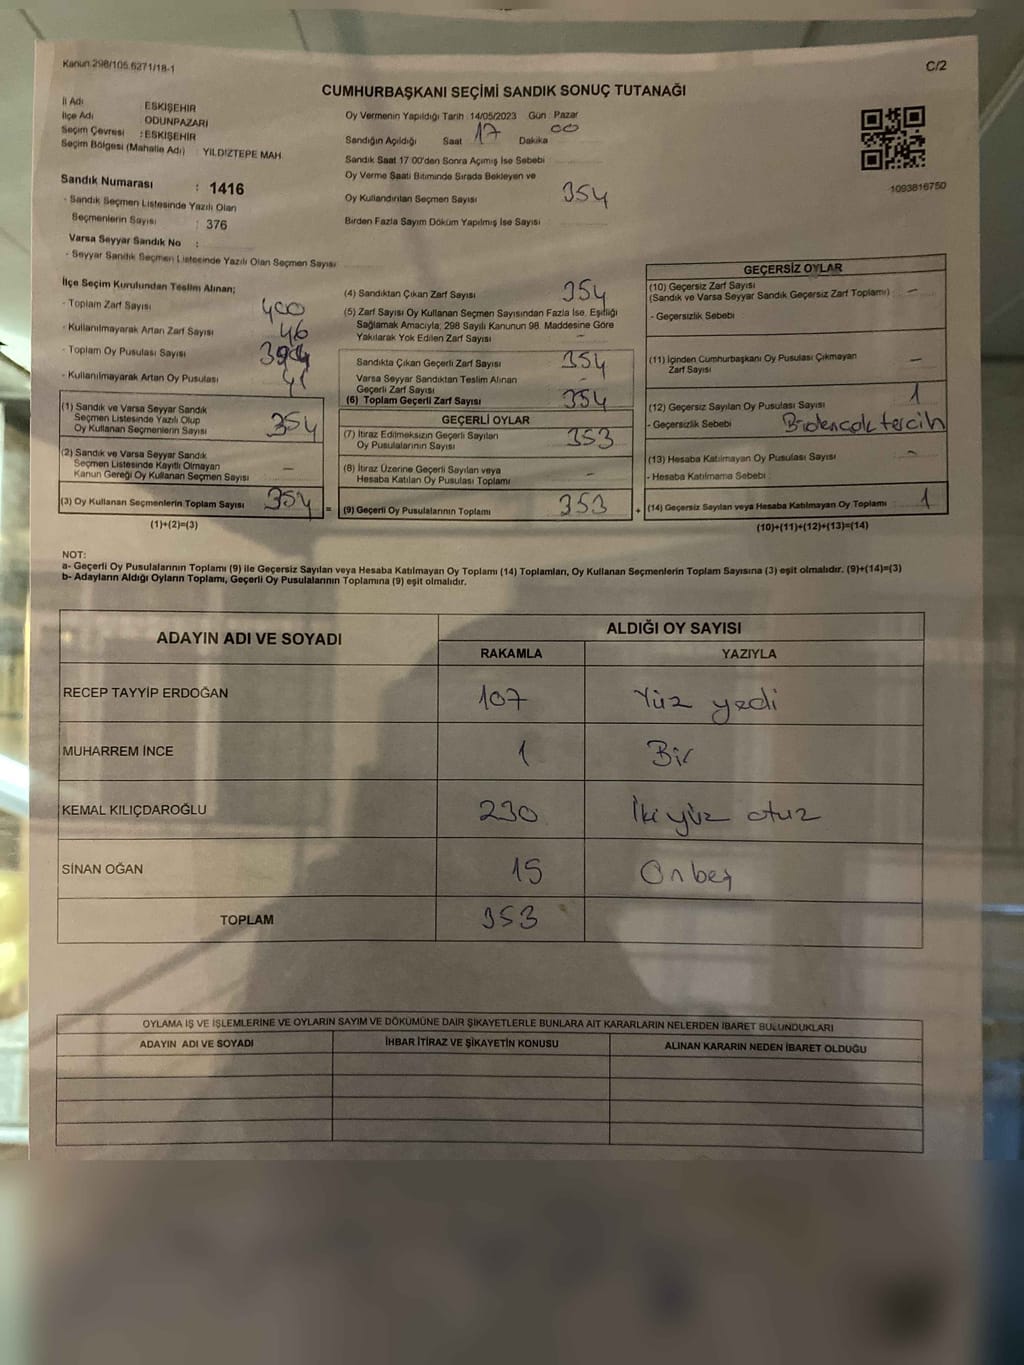 Kanun 298/105.6271/18-1
C/2
CUMHURBAŞKANI SEÇİMİ SANDIK SONUÇ TUTANAĞI
İl Adı : ESKİŞEHİR
İlçe Adı : ODUNPAZARI
Seçim Çevresi : ESKİŞEHİR
Seçim Bölgesi (Mahalle Adı) : YILDIZTEPE MAH.
Sandık Numarası : 1416
- Sandık Seçmen Listesinde Yazılı Olan
Seçmenlerin Sayısı : 376
Varsa Seyyar Sandık No :
- Seyyar Sandık Seçmen Listesinde Yazılı Olan Seçmen Sayısı
Oy Vermenin Yapıldığı Tarih 14/05/2023 Gün : Pazar
Sandığın Açıldığı Saat 17 Dakika 00
Sandık Saat 17:00'den Sonra Açımış İse Sebebi
Oy Verme Saati Bitiminde Sırada Bekleyen ve
Oy Kullandırılan Seçmen Sayısı 354
Birden Fazla Sayım Döküm Yapılmış İse Sayısı
1093816750
İlçe Seçim Kurulundan Teslim Alınan;
- Toplam Zarf Sayısı 400
- Kullanılmayarak Artan Zarf Sayısı 46
- Toplam Oy Pusulası Sayısı
- Kullanılmayarak Artan Oy Pusulası 41
(1) Sandık ve Varsa Seyyar Sandık
Seçmen Listesinde Yazılı Olup
Oy Kullanan Seçmenlerin Sayısı 354
(2) Sandık ve Varsa Seyyar Sandık
Seçmen Listesinde Kayıtlı Olmayan
Kanun Gereği Oy Kullanan Seçmen Sayısı –
(3) Oy Kullanan Seçmenlerin Toplam Sayısı 354
(1)+(2)=(3)
(4) Sandıktan Çıkan Zarf Sayısı 354
(5) Zarf Sayısı Oy Kullanan Seçmen Sayısından Fazla İse, Eşitliği
Sağlamak Amacıyla; 298 Sayılı Kanunun 98. Maddesine Göre
Yakılarak Yok Edilen Zarf Sayısı –
Sandıkta Çıkan Geçerli Zarf Sayısı 354
Varsa Seyyar Sandıktan Teslim Alınan
Geçerli Zarf Sayısı –
(6) Toplam Geçerli Zarf Sayısı 354
GEÇERLİ OYLAR
(7) İtiraz Edilmeksizin Geçerli Sayılan
Oy Pusulalarının Sayısı 353
(8) İtiraz Üzerine Geçerli Sayılan veya
Hesaba Katılan Oy Pusulası Toplamı –
=
(9) Geçerli Oy Pusulalarının Toplamı 353
+
GEÇERSİZ OYLAR
(10) Geçersiz Zarf Sayısı
(Sandık ve Varsa Seyyar Sandık Geçersiz Zarf Toplamı) –
- Geçersizlik Sebebi
(11) İçinden Cumhurbaşkanı Oy Pusulası Çıkmayan
Zarf Sayısı –
(12) Geçersiz Sayılan Oy Pusulası Sayısı 1
- Geçersizlik Sebebi Birden çok tercih
(13) Hesaba Katılmayan Oy Pusulası Sayısı –
- Hesaba Katılmama Sebebi
(14) Geçersiz Sayılan veya Hesaba Katılmayan Oy Toplamı 1
(10)+(11)+(12)+(13)=(14)
NOT:
a- Geçerli Oy Pusulalarının Toplamı (9) ile Geçersiz Sayılan veya Hesaba Katılmayan Oy Toplamı (14) Toplamları, Oy Kullanan Seçmenlerin Toplam Sayısına (3) eşit olmalıdır. (9)+(14)=(3)
b- Adayların Aldığı Oyların Toplamı, Geçerli Oy Pusulalarının Toplamına (9) eşit olmalıdır.
ADAYIN ADI VE SOYADI
ALDIĞI OY SAYISI
RAKAMLA YAZIYLA
RECEP TAYYİP ERDOĞAN 107 Yüz yedi
MUHARREM İNCE 1 Bir
KEMAL KILIÇDAROĞLU 230 İki yüz otuz
SİNAN OĞAN 15 Onbeş
TOPLAM 353
OYLAMA İŞ VE İŞLEMLERİNE VE OYLARIN SAYIM VE DÖKÜMÜNE DAİR ŞİKAYETLERLE BUNLARA AİT KARARLARIN NELERDEN İBARET BULUNDUKLARI
ADAYIN ADI VE SOYADI İHBAR İTİRAZ VE ŞİKAYETİN KONUSU ALINAN KARARIN NEDEN İBARET OLDUĞU